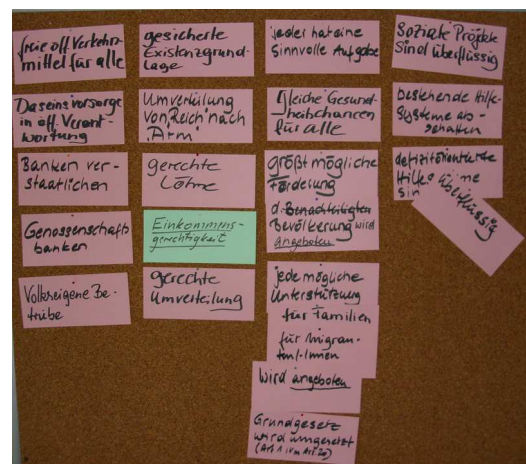 freie öff Verkehrs-
mittel für alle
Daseinsvorsorge
in öff. Verant
wortung
Banken ver-
staatlichen
Genossenschaft
banken
Volkseigene Be-
triebe
gesicherte
Existenzgrund-
lage
Umverteilung
von „Reich" nach
„Arm"
gerechte
Löhne
Einkommens-
gerechtigkeit
gerechte
Umverteilung
jeder hat eine
Sinnvolle Aufgabe
gleiche Gesund-
heitschancen
für alle
größt mögliche
Förderung
d. Benachteiligten
Bevölkerung wird
angeboten
jede mögliche
Unterstützung
für Familien
für Migran-
ten/-Innen
wird angeboten
Grundgesetz
wird umgesetzt
Soziale Projekte
sind überflüssig
bestehende Hilfe-
Systeme ab-
schaffen
defizitorientierte
Hilfe
sin
überflüssig